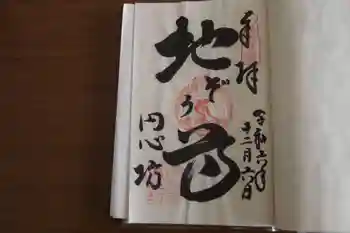 奉拝
令和六年
十二月六日
地ぞう
円心坊